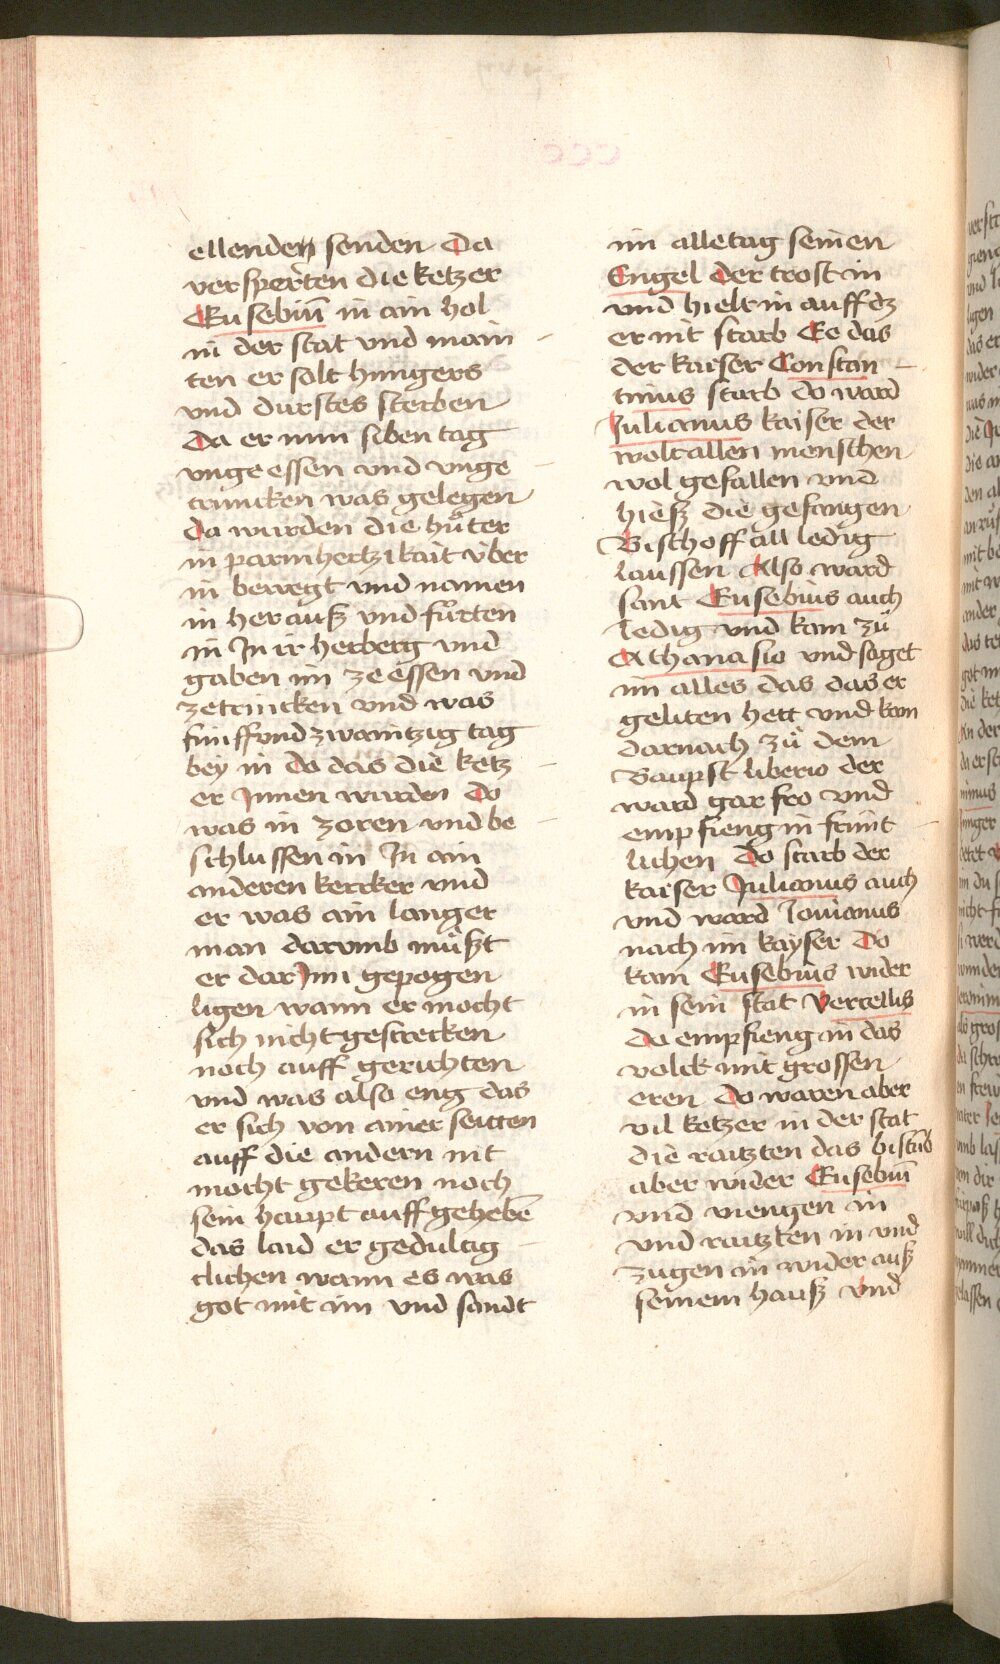 ellenden senden Da
versperten die ketzer
Eusebiū in ain hol
in der stat vnd main
ten er solt hungers
vnd durstes sterben
Da er nun siben tag
vngeessen vnd vnge
truncken was gelegen
Da wurden die hůter
in parmhertzikait über
in bewegt vnd namen
in herauß vnd fůrten
in In ir herberg vnd
gaben im ze essen vnd
zetrincken vnd was
fünffvnd zwaintzig tag
bey in Do das die ketz
er Innen wurden Do
was in zoren vnd be
schlussen in In ain
anderen kercker vnd
er was ain langer
man darumb můßt
er dar Inn gepogen
ligen wann er mocht
sich nicht gestrecken
noch auff gerichten
vnd was also eng das
er sich von ainer seitten
auff die andern nit
mocht gekeren noch
sein haupt auff gehebē
das laid er gedultig
clichen wann es was
got mit im vnd sandt
im alletag seinen
Engel der trost in
vnd hielt in auff dz
er nit starb Ee das
der kaiser Constan
tinus starb do ward
Julianus kaiser der
wolt allen menschen
wol gefallen vnd
hieß die gefangen
Bischoff all ledig
laussen Also ward
sant Eusebius auch
ledig vnd kam zů
Athanasio vnd saget
im alles das das er
geliten hett vnd kam
darnach zů dem
Baupst liberio der
ward gar fro vnd
empfieng in frünt
lichen Do starb der
kaiser Julianus auch
vnd ward Iouianus
nach im kayser Do
kam Eusebius wider
in sein stat Vercellis
da empfieng in das
volck mit grossen
eren Do waren aber
vil ketzer in der stat
die raitzten das bistūb
aber wider Eusebiū
vnd viengen in
vnd raitzten in vnd
zugen in wider auß
seinem hauß vnd